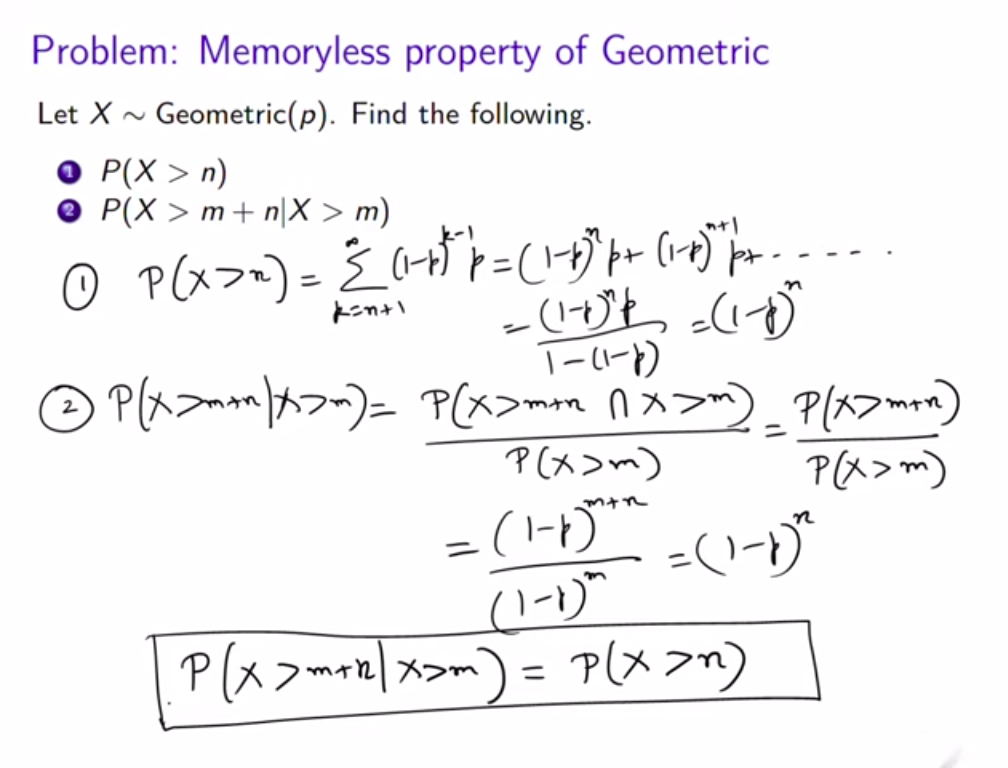 Problem: Memoryless property of Geometric
Let X ~ Geometric(p). Find the following.
1 P(X > n)
2 P(X > m + n|X > m)
① P(X>n) = ∑_{k=n+1}^{∞} (1-p)^{k-1} p = (1-p)^n p + (1-p)^{n+1} p + . . . . . .
= \frac{(1-p)^n p}{1-(1-p)} = (1-p)^n
② P(X>m+n|X>m) = \frac{P(X>m+n ∩ X>m)}{P(X>m)} = \frac{P(X>m+n)}{P(X>m)}
= \frac{(1-p)^{m+n}}{(1-p)^m} = (1-p)^n
P(X>m+n|X>m) = P(X>n)